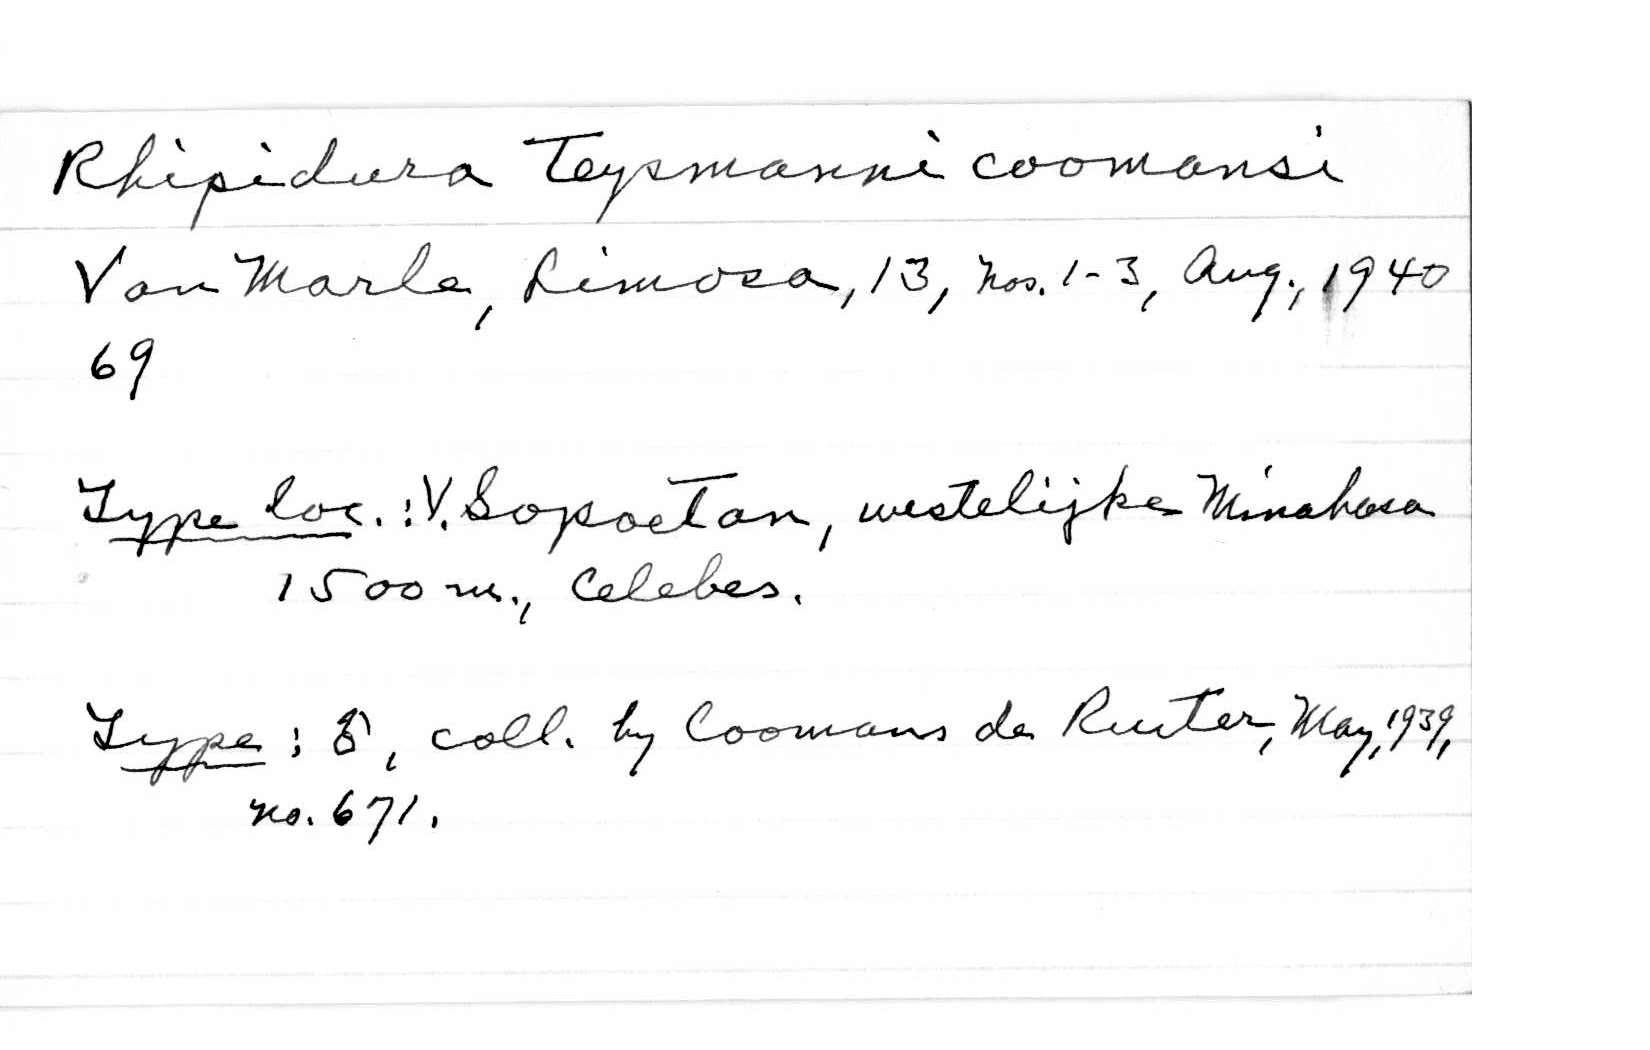 Rhipidura Teysmanni coomansi
Van Marle, Limosa, 13, nos. 1-3, Aug., 1940
69
Type loc.: V. Sopoetan, westelijke Minahasa
1500 m., Celebes.
Type: ♂, coll. by Coomans de Ruiter, May, 1939,
no. 671.